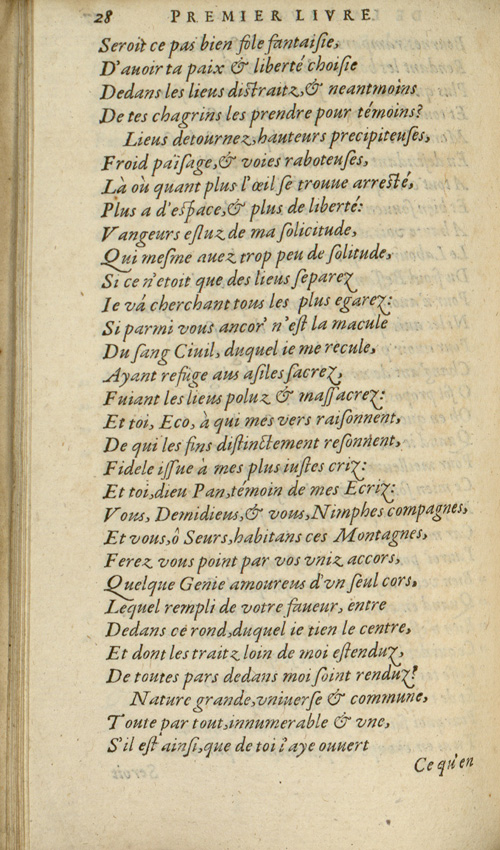 28 PREMIER LIVRE
Seroit ce pas bien fole fantaisie,
D'auoir ta paix & liberté choisie
Dedans les lieus distraitz, & neantmoins
De tes chagrins les prendre pour témoins?
Lieus detournez, hauteurs precipiteuses,
Froid païsage, & voies raboteuses,
Là où quant plus l'œil se trouue arresté,
Plus a d'espace, & plus de liberté:
Vangeurs esluz de ma solicitude,
Qui mesme auez trop peu de solitude,
Si ce n'etoit que des lieus separez
Ie vá cherchant tous les plus egarez:
Si parmi vous ancor' n'est la macule
Du sang Ciuil, duquel ie me recule,
Ayant refuge aus asiles sacrez,
Fuiant les lieus poluz & massacrez:
Et toi, Eco, à qui mes vers raisonnent,
De qui les fins distinctement resonnent,
Fidele issue à mes plus iustes criz:
Et toi, dieu Pan, témoin de mes Ecriz:
Vous, Demidieus, & vous, Nimphes compagnes,
Et vous, ô Seurs, habitans ces Montagnes,
Ferez vous point par vos vniz accors,
Quelque Genie amoureus d'vn seul cors,
Lequel rempli de votre faueur, entre
Dedans cé rond, duquel ie tien le centre,
Et dont les traitz loin de moi estenduz,
De toutes pars dedans moi soint renduz?
Nature grande, vniuerse & commune,
Toute par tout, innumerable & vne,
S'il est ainsi, que de toi i'aye ouuert
Ce qu'en